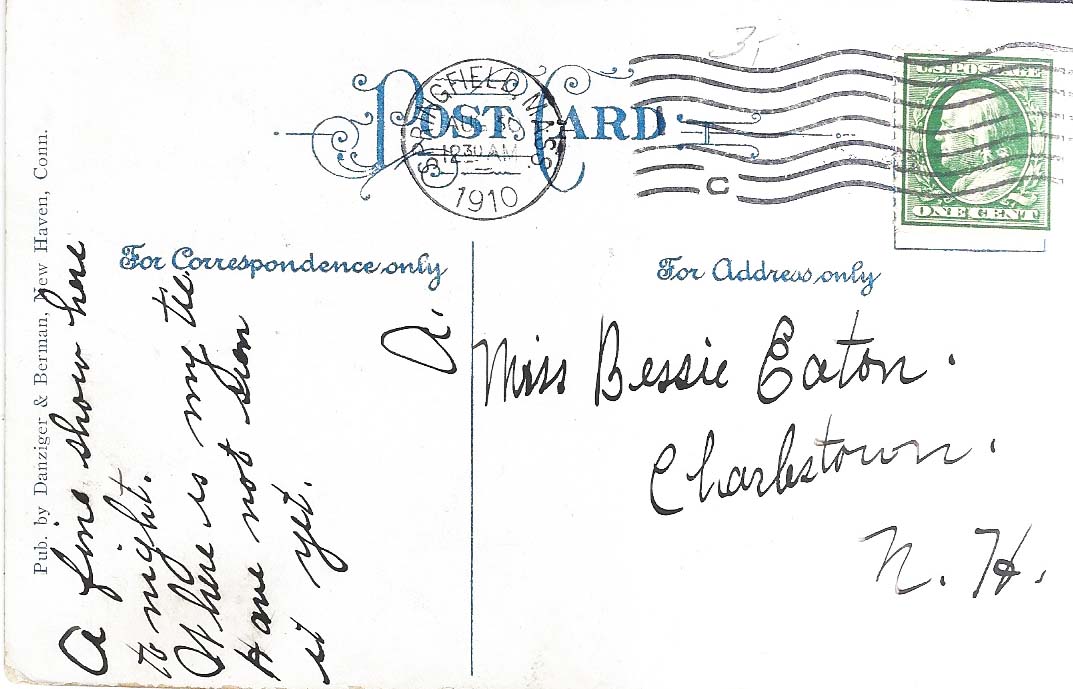 POST CARD
SPRINGFIELD, MASS.
1230 AM
1910
C
U.S. POSTAGE
ONE CENT
35
For Correspondence only
For Address only
Pub. by Danziger & Berman, New Haven, Conn.
A fine show here
to night.
Where is my tie
Have not seen
it yet.
A.
Miss Bessie Eaton.
Charlestown.
N. H.